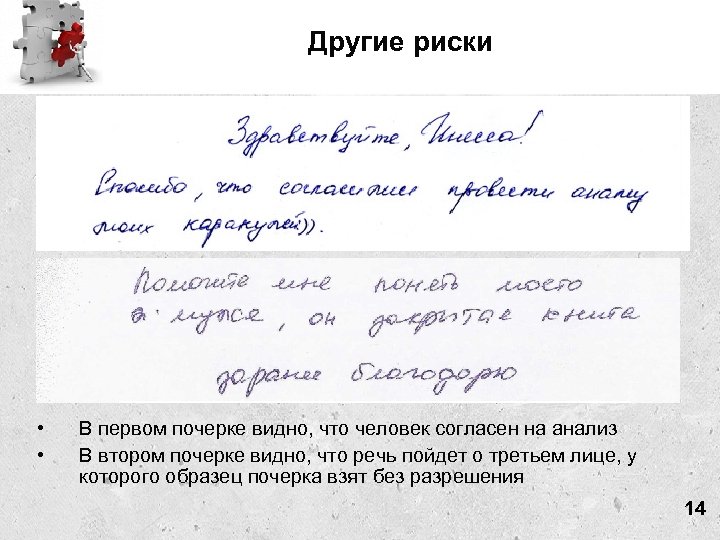 Другие риски
Здравствуйте, Инесса!
Спасибо, что согласились провести анализ
моих каракулей)).
Помогите мне понять моего
мужа, он закрытая книга
зарание благодорю
• В первом почерке видно, что человек согласен на анализ
• В втором почерке видно, что речь пойдет о третьем лице, у
которого образец почерка взят без разрешения
14